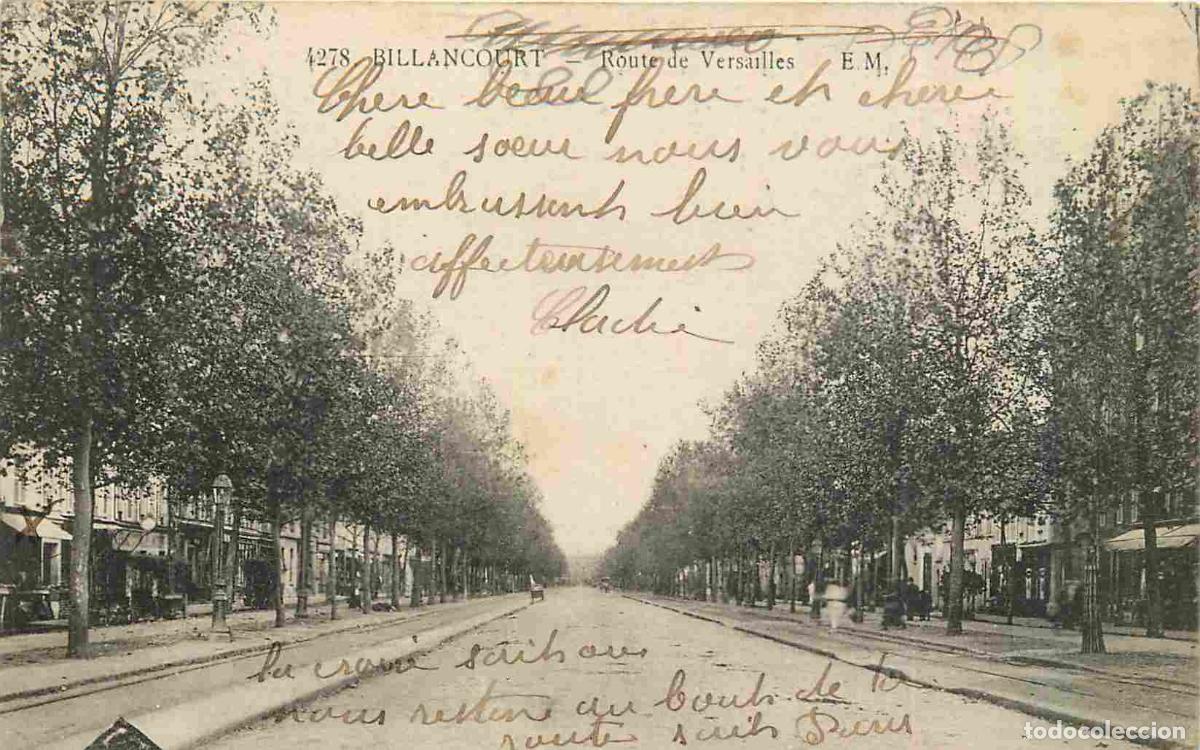 4278 BILLANCOURT — Route de Versailles E.M.
Chere beau frere et cherie
belle sœur nous vous
embrussent bien
affecteusement
la croix sait ou
nous restons au bout de la
route sait Paris
todocoleccion